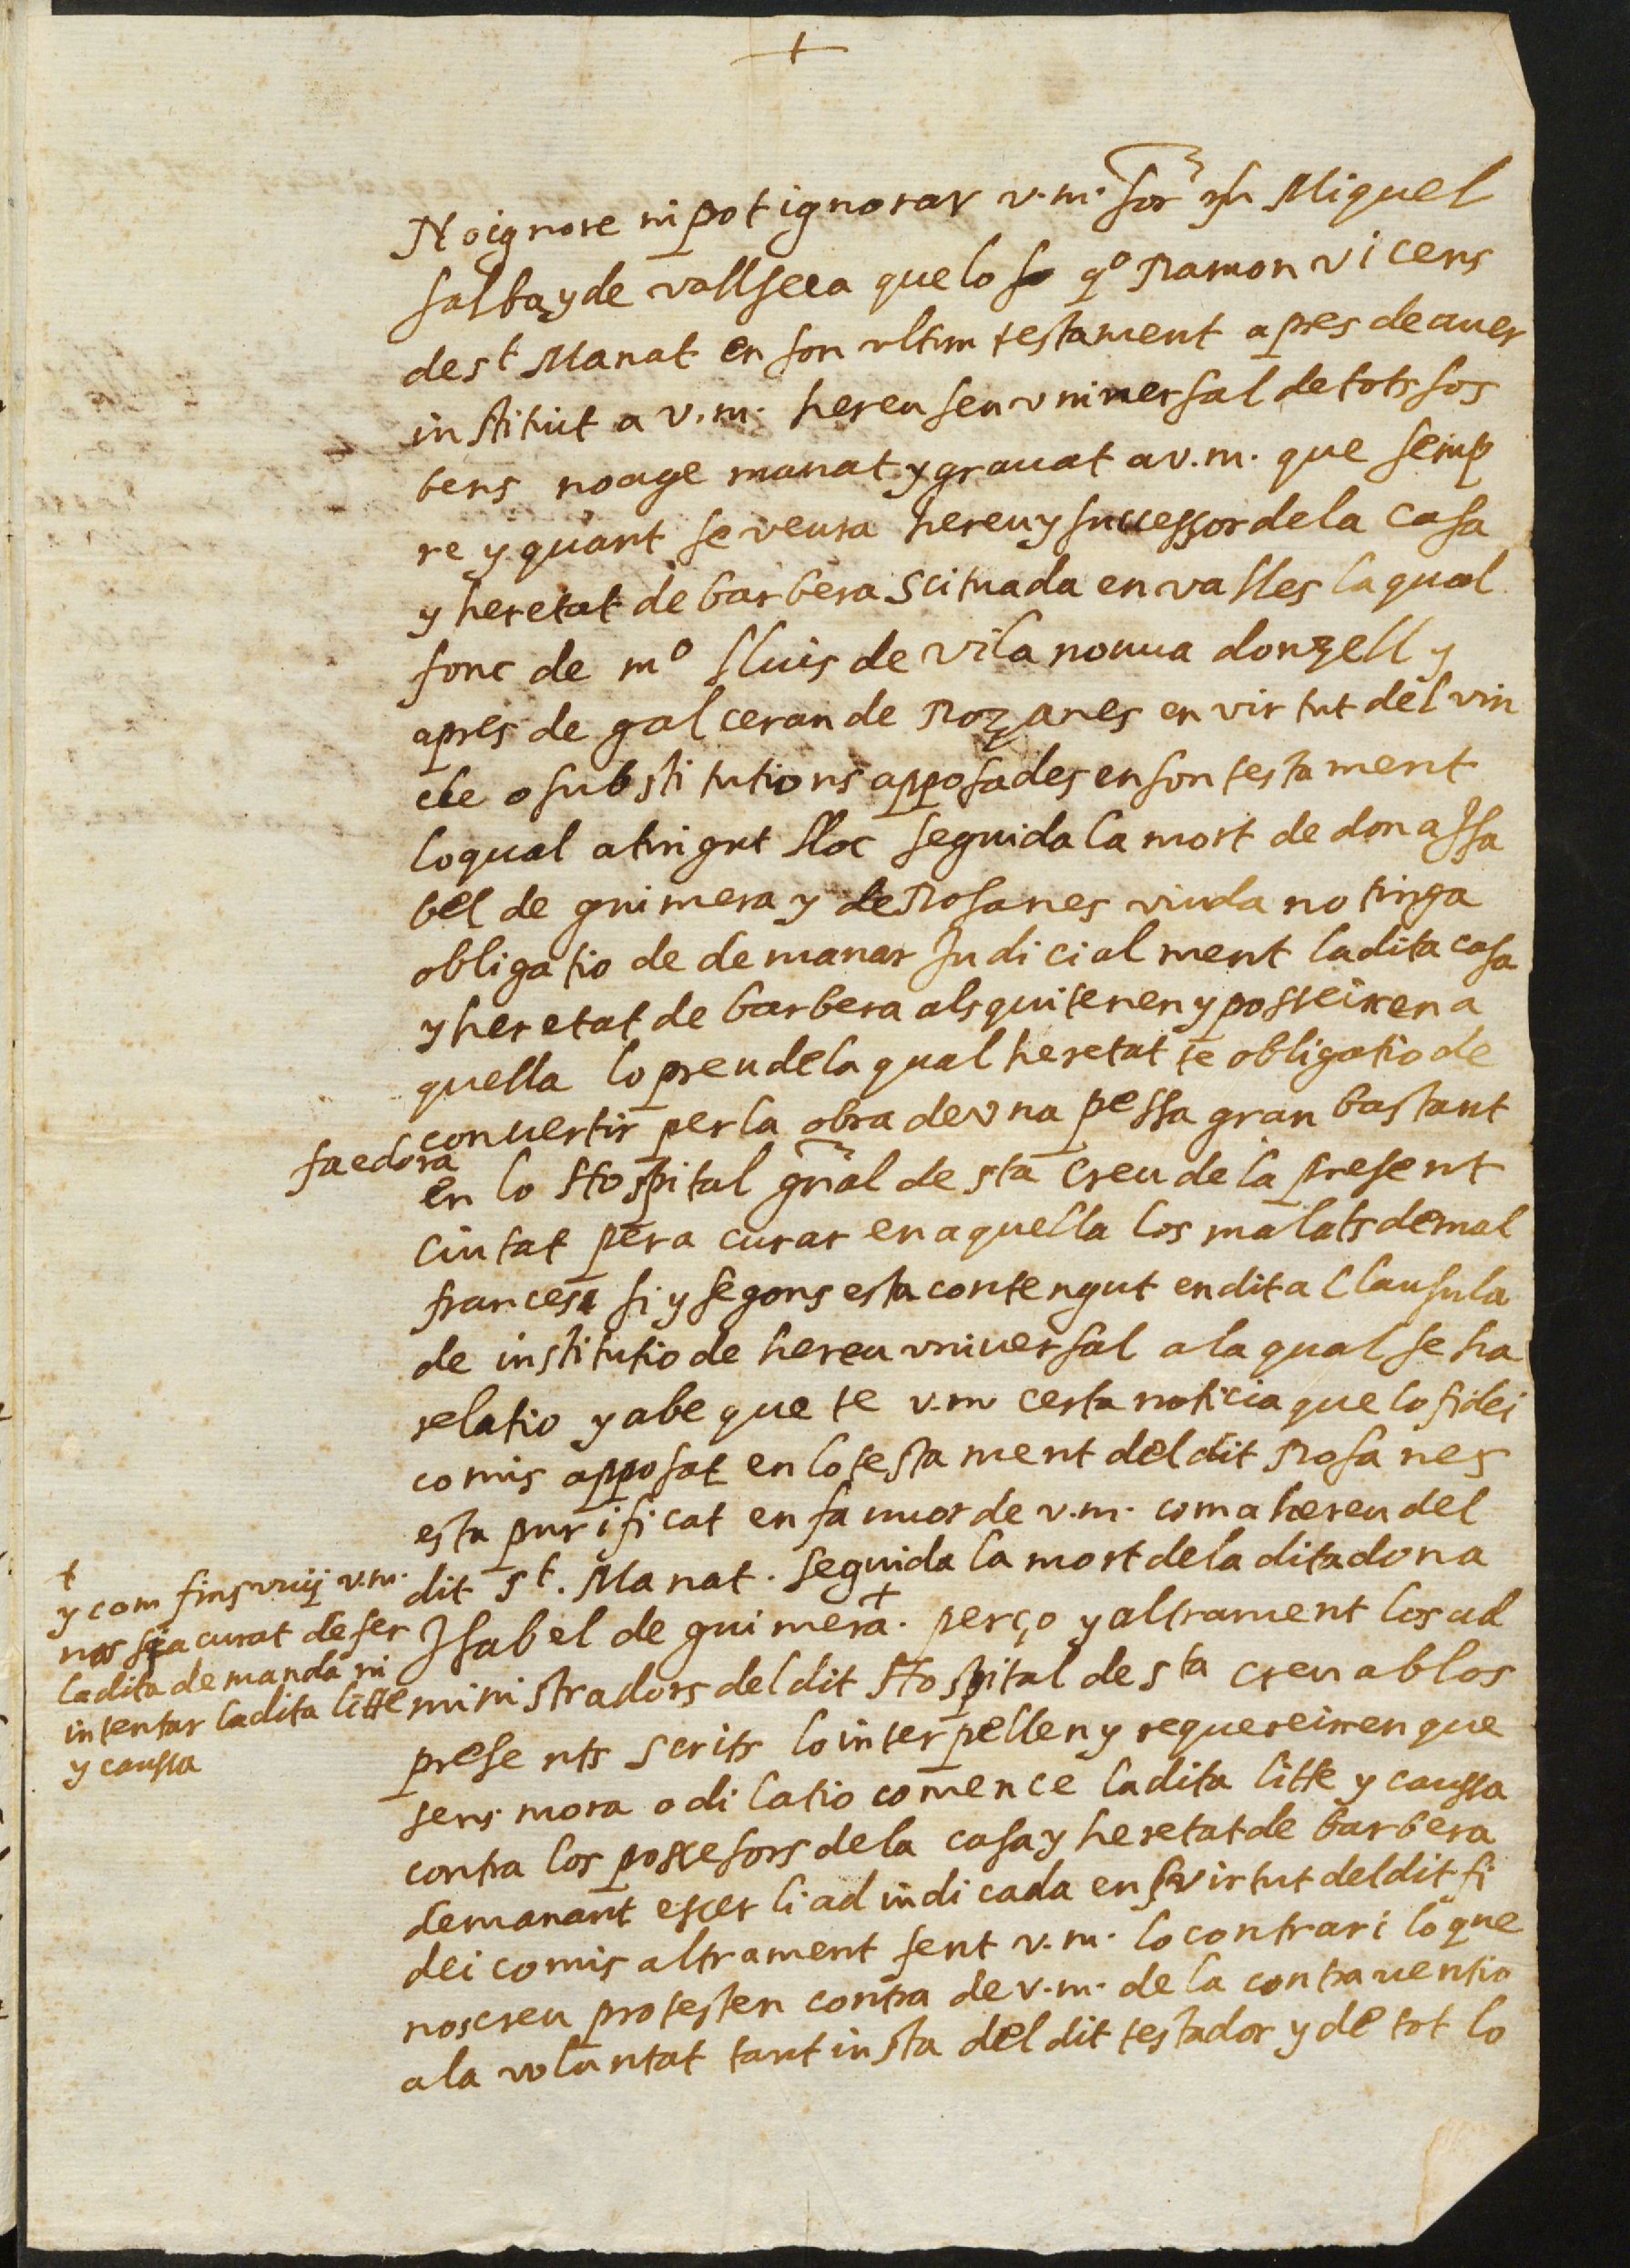 +
No ignore ni pot ignorar v.m. sor Miquel
salba y de vallseca que lo qº Ramon vicens
de st Manat en son ultim testament apres de auer
instituit a v.m. hereu seu vniuersal de tots sos
bens no age manat y grauat a v.m. que semp
re y quant se veura hereu y successor de la casa
y heretat de barbera scituada en valles la qual
fonc de mº lluis de vilanouua donzell y
apres de galceran de Rozanes en virtut del vin
cle o substitutions apposades en son testament
lo qual a tingut lloc seguida la mort de dona Isa
bel de guimera y de Rosanes viuda no tinga
obligatio de demanar Judicialment la dita casa
y heretat de barbera als qui tenen y posseixen a
quella lo preu de la qual heretat te obligatio de
conuertir per la obra de vna pessa gran bastant
faedora
en lo Hospital gñal de sta Creu de la present
Ciutat pera curar en aquella los malats de mal
frances si y segons esta contengut en dita Clausula
de institutio de hereu vniuersal a la qual se ha
relatio y abe que te v.m certa noticia que lo fidei
comis apposat en lo testament del dit Rosanes
esta purificat en fauuor de v.m. com a hereu del
dit st. Manat. seguida la mort de la dita dona
Isabel de guimera +. perço y altrament los ad
ministradors del dit Hospital de sta creu ab los
presents scrits lo interpellen y requereixen que
sens mora o dilatio comence la dita litte y caussa
contra los possesors de la casa y heretat de barbera
demanant esser li adiudicada en virtut del dit fi
dei comis altrament fent v.m. lo contrari lo que
nos creu protesten contra de v.m. de la contrauentio
a la voluntat tant iusta del dit testador y de tot lo
+
y com fins vuy v.m.
nos sia curat de fer
la dita demanda ni
intentar la dita litte
y caussa